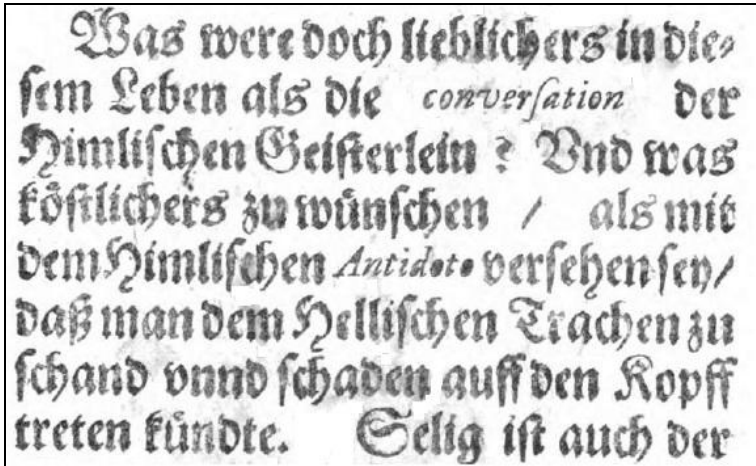 Was were doch lieblichers in die⸗
ſem Leben als die converſation der
Himliſchen Geiſterlein ? Vnd was
köſtlichers zu wünſchen / als mit
dem Himliſchen Antidoto verſehen ſey/
daß man dem Helliſchen Trachen zu
ſchand vnnd ſchaden auff den Kopff
treten kündte. Selig iſt auch der